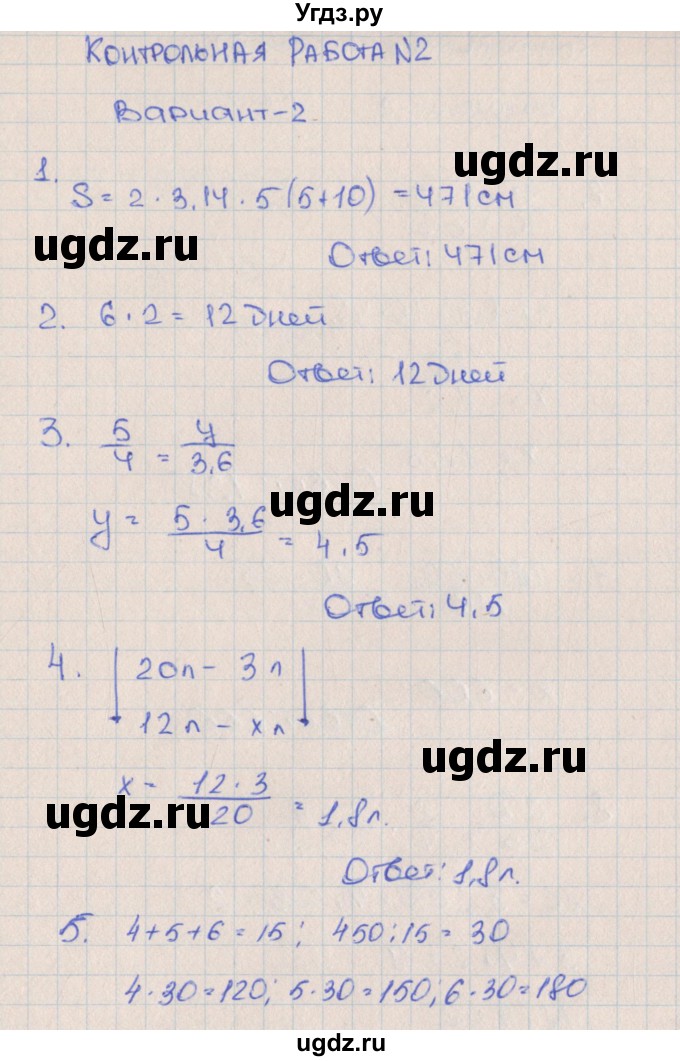 Угдз.ру
КОНТРОЛЬНАЯ РАБОТА N2
Вариант-2
ugdz.ru
1.
S = 2 · 3,14 · 5 (5+10) = 471 см
ugdz.ru
Ответ: 471 см
2. 6 · 2 = 12 Дней
Ответ: 12 Дней
3. 5/4 = y/3,6
ugdz.ru
y = 5 · 3,6 / 4 = 4,5
Ответ: 4,5
4. 20л - 3 л
12л - x л
ugdz.ru
x = 12 · 3 / 20 = 1,8л.
ugdz.ru
Ответ: 1,8л.
5. 4+5+6=15; 450:15=30
4·30=120; 5·30=150; 6·30=180
ugdz.ru